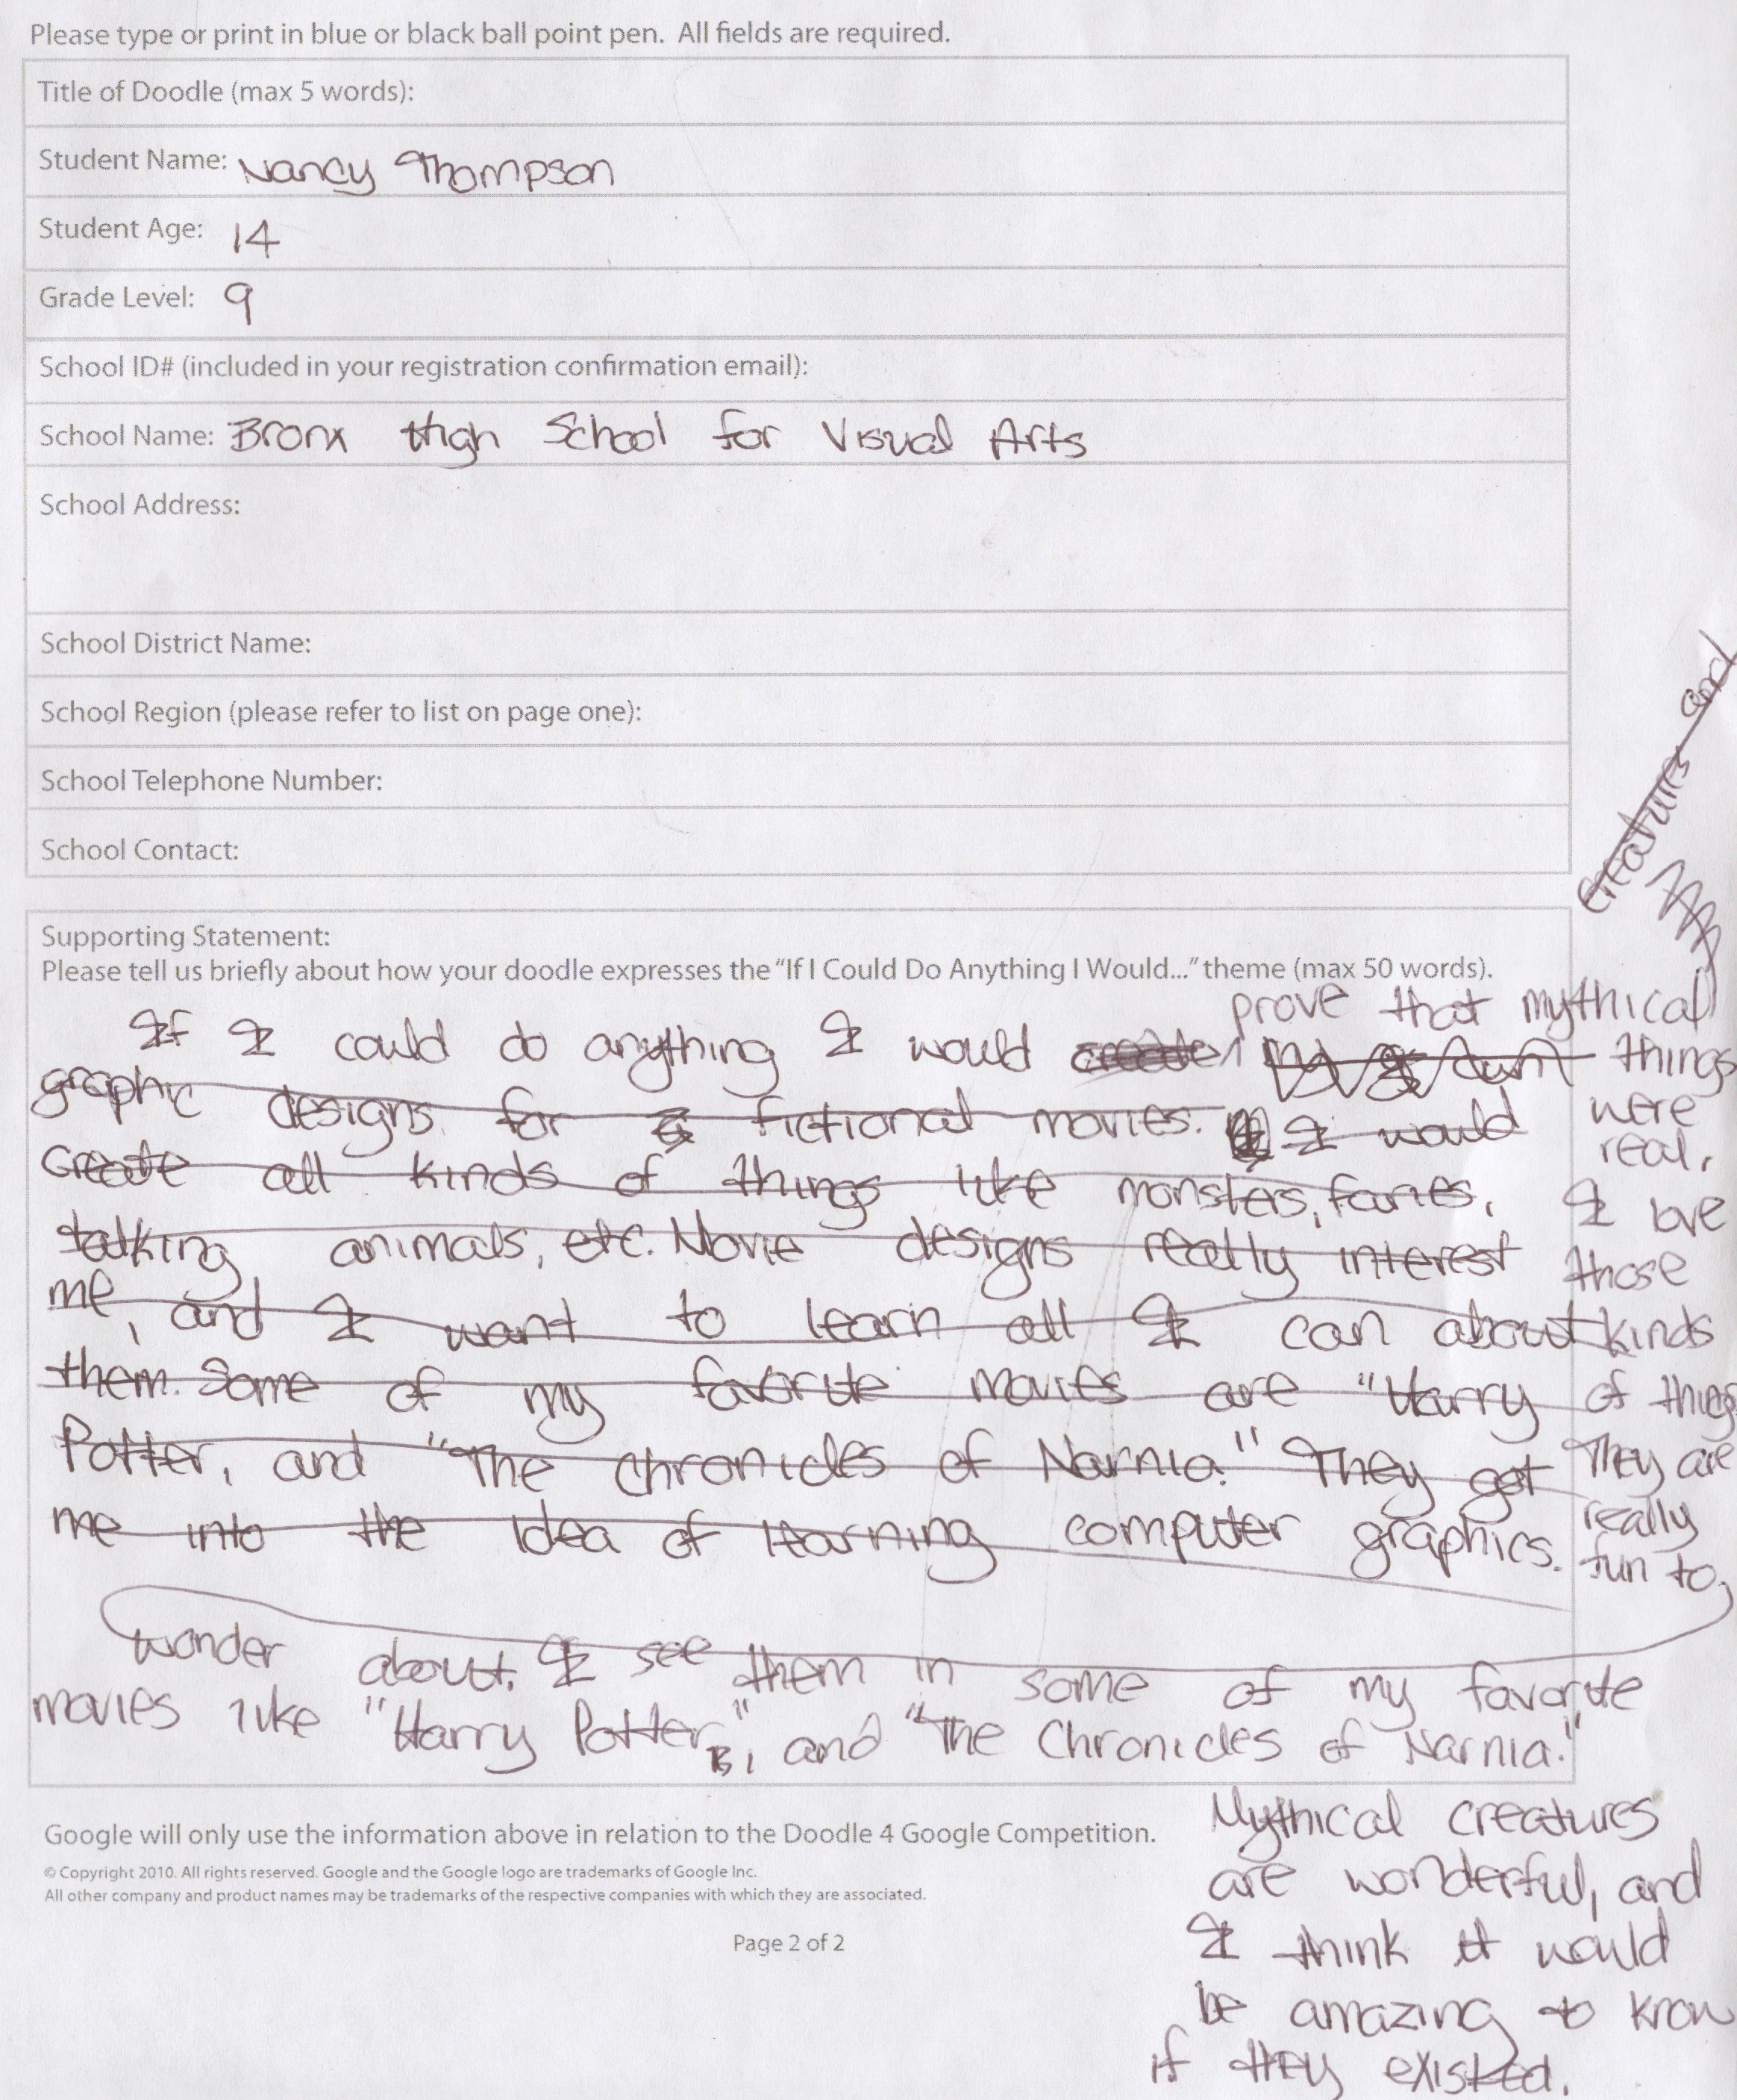 Please type or print in blue or black ball point pen. All fields are required.
Title of Doodle (max 5 words):
Student Name: Nancy Thompson
Student Age: 14
Grade Level: 9
School ID# (included in your registration confirmation email):
School Name: Bronx High School for Visual Arts
School Address:
School District Name:
School Region (please refer to list on page one):
School Telephone Number:
School Contact:
creatures and
Supporting Statement:
Please tell us briefly about how your doodle expresses the "If I Could Do Anything I Would..." theme (max 50 words).
prove that mythical
If I could do anything I would create my own
things
graphic designs for fictional movies. I would
were
real.
create all kinds of things like monsters, faries,
I love
talking animals, etc. Movie designs really interest
those
me, and I want to learn all I can about
kinds
them. Some of my favorite movies are "Harry
of things
Potter, and "The Chronicles of Narnia." They got
They are
me into the idea of learning computer graphics.
really
fun to
wonder about. I see them in some of my favorite
movies like "Harry Potter", and "The Chronicles of Narnia."
Mythical creatures
are wonderful, and
I think it would
be amazing to know
if they existed.
Google will only use the information above in relation to the Doodle 4 Google Competition.
© Copyright 2010. All rights reserved. Google and the Google logo are trademarks of Google Inc.
All other company and product names may be trademarks of the respective companies with which they are associated.
Page 2 of 2